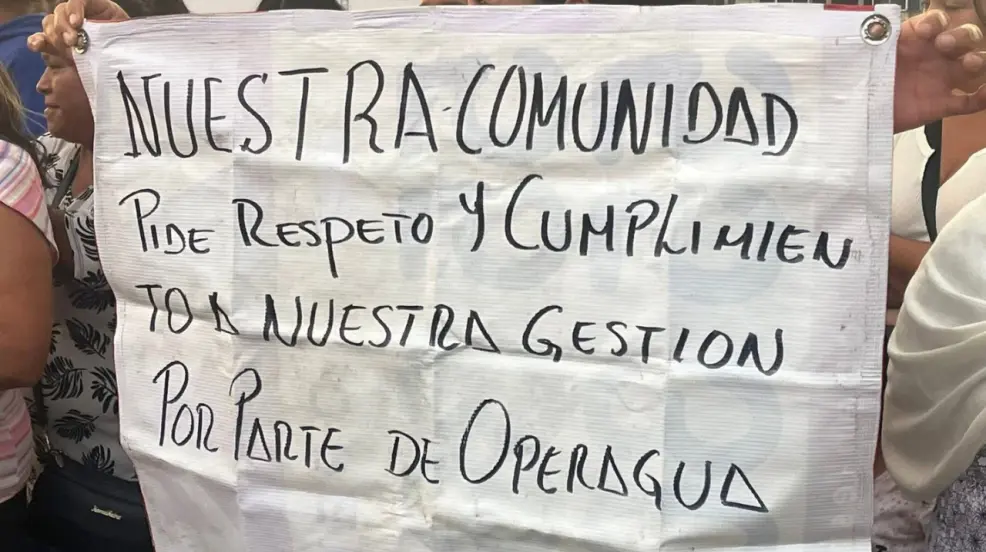 NUESTRA COMUNIDAD
PIDE RESPETO Y CUMPLIMIEN
TO A NUESTRA GESTION
POR PARTE DE OPERAGUA